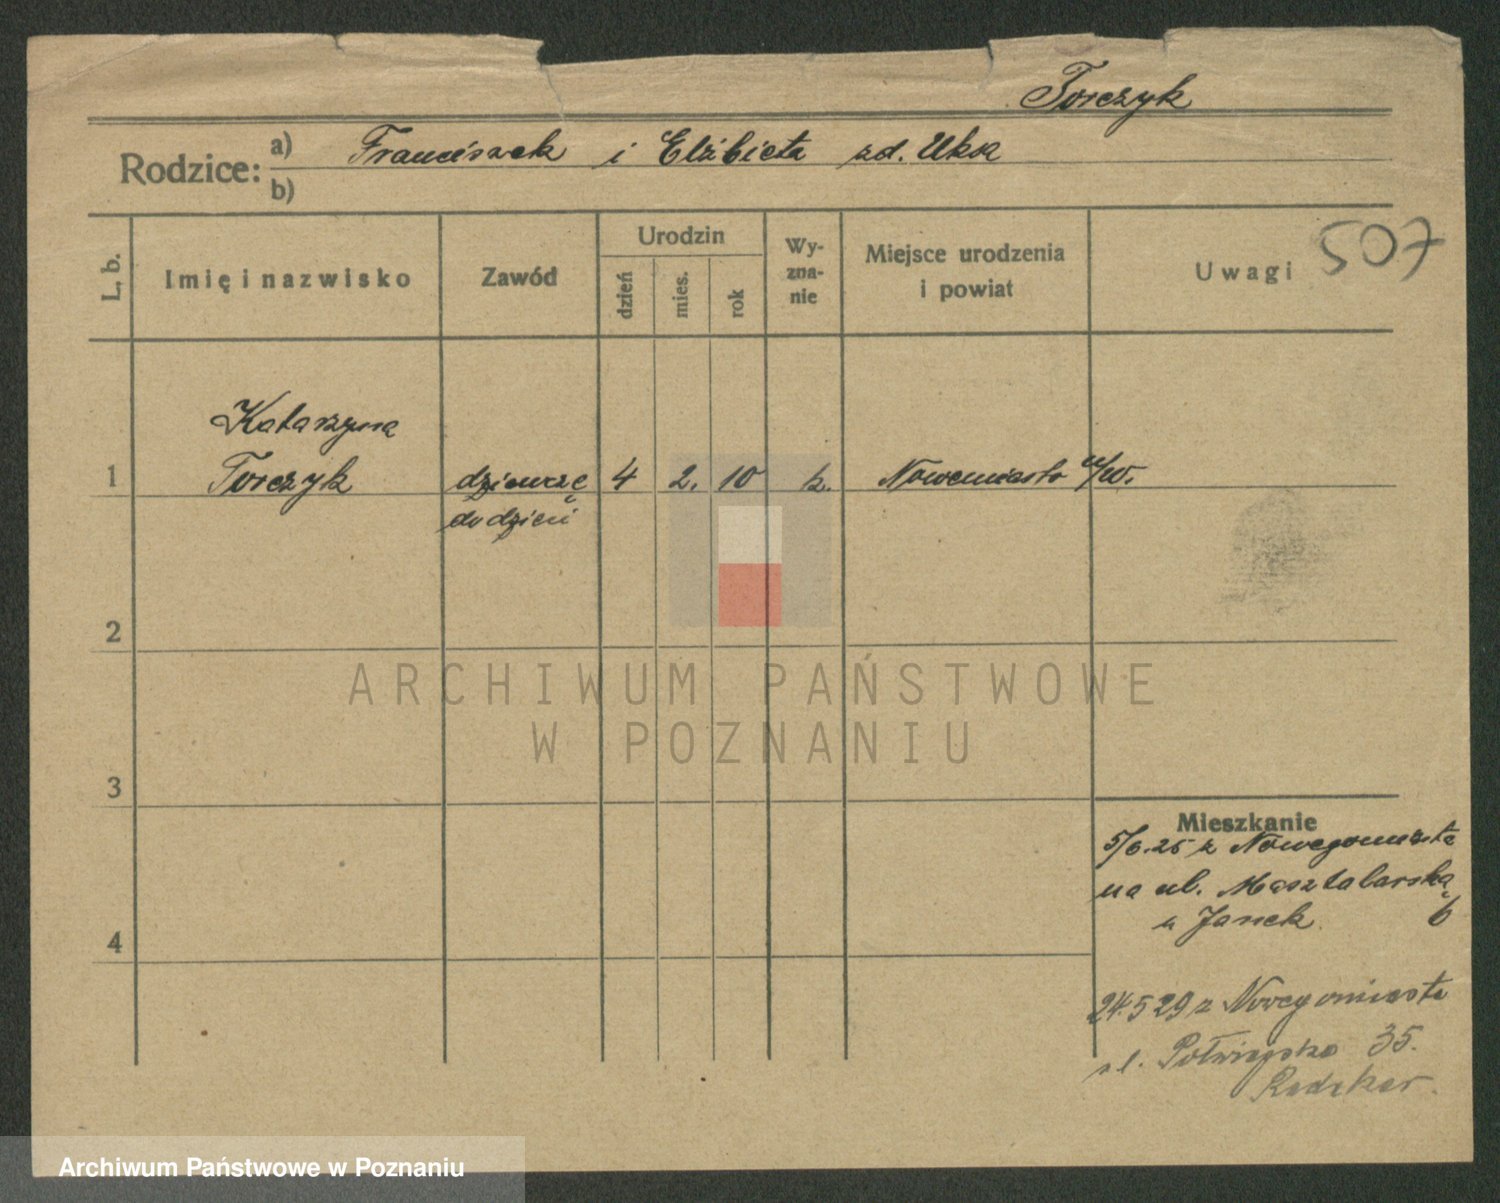 Torczyk
Rodzice: a) Franciszek i Elżbieta zd. Ukos
b)
L. b. Imię i nazwisko Zawód Urodzin dzień mies. rok Wy-zna-nie Miejsce urodzenia i powiat Uwagi 507
Katarzyna
1 Torczyk dziewczę 4 2. 10 k. Nowemiasto n/W.
do dzieci
2
3
4
Mieszkanie
5/6.25 z Nowegomiasta
na ul. Masztalarską
u Janek 6
24.5 29 z Nowegomiasta
ul. Półwiejska 35.
ARCHIWUM PAŃSTWOWE
W POZNANIU
Archiwum Państwowe w Poznaniu